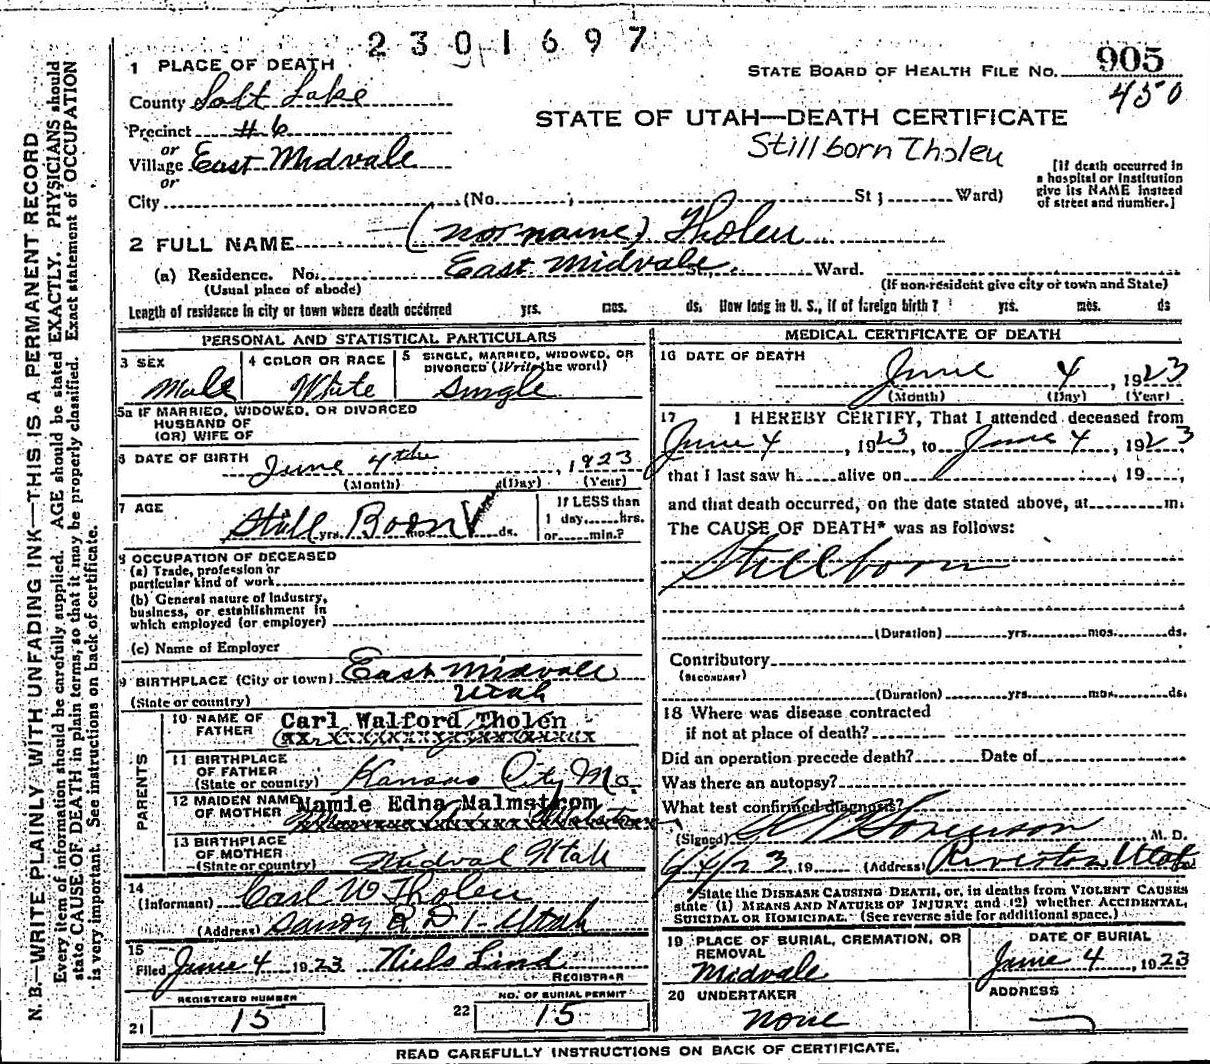 2301697
905
450
1 PLACE OF DEATH
STATE BOARD OF HEALTH FILE NO.
County Salt Lake
STATE OF UTAH—DEATH CERTIFICATE
Precinct #6
Stillborn Tholen
or
Village East Midvale
or
City (No. ; St ; Ward)
[If death occurred in
a hospital or institution
give its NAME instead
of street and number.]
2 FULL NAME (no name) Tholen
(a) Residence. No. East Midvale St. Ward.
(Usual place of abode)
(If non-resident give city or town and State)
Length of residence in city or town where death occurred yrs. mos. ds. How long in U. S., if of foreign birth? yrs. mos. ds
PERSONAL AND STATISTICAL PARTICULARS
3 SEX
Male
4 COLOR OR RACE
White
5 SINGLE, MARRIED, WIDOWED, OR
DIVORCED (Write the word)
Single
5a IF MARRIED, WIDOWED, OR DIVORCED
HUSBAND OF
(OR) WIFE OF
6 DATE OF BIRTH June 4th, 1923
(Month) (Day) (Year)
7 AGE
Still yrs. Born mos. ds.
If LESS than
1 day,.....hrs.
or.....min.?
8 OCCUPATION OF DECEASED
(a) Trade, profession or
particular kind of work
(b) General nature of Industry,
business, or establishment in
which employed (or employer)
(c) Name of Employer
9 BIRTHPLACE (City or town) East Midvale
(State or country) Utah
PARENTS
10 NAME OF
FATHER
Carl Walford Tholen
11 BIRTHPLACE
OF FATHER
(State or country) Kansas City Mo.
12 MAIDEN NAME
OF MOTHER
Mamie Edna Malmstrom
13 BIRTHPLACE
OF MOTHER
(State or country) Midval Utah
14
(Informant) Carl W Tholen
(Address) Sandy R. D 1 - Utah
15
Filed June 4 1923 Niels Lind
REGISTRAR
REGISTERED NUMBER
21 15
NO. OF BURIAL PERMIT
22 15
MEDICAL CERTIFICATE OF DEATH
16 DATE OF DEATH
June 4, 1923
(Month) (Day) (Year)
17 I HEREBY CERTIFY, That I attended deceased from
June 4, 1923, to June 4, 1923
that I last saw h alive on , 19 ,
and that death occurred, on the date stated above, at m.
The CAUSE OF DEATH* was as follows:
Stillborn
(Duration) yrs. mos. ds.
Contributory
(SECONDARY)
(Duration) yrs. mos. ds.
18 Where was disease contracted
if not at place of death?
Did an operation precede death? Date of
Was there an autopsy?
What test confirmed diagnosis?
(Signed) Sorenson M. D.
6/4/23, 19 (Address) Riverton Utah
*State the DISEASE CAUSING DEATH, or, in deaths from VIOLENT CAUSES
state (1) MEANS AND NATURE OF INJURY; and (2) whether ACCIDENTAL,
SUICIDAL or HOMICIDAL. (See reverse side for additional space.)
19 PLACE OF BURIAL, CREMATION, OR
REMOVAL
Midvale
DATE OF BURIAL
June 4, 1923
20 UNDERTAKER
none
ADDRESS
READ CAREFULLY INSTRUCTIONS ON BACK OF CERTIFICATE.
N. B.—WRITE PLAINLY WITH UNFADING INK—THIS IS A PERMANENT RECORD
Every item of information should be carefully supplied. AGE should be stated EXACTLY. PHYSICIANS should
state CAUSE OF DEATH in plain terms, so that it may be properly classified. Exact statement of OCCUPATION
is very important. See instructions on back of certificate.